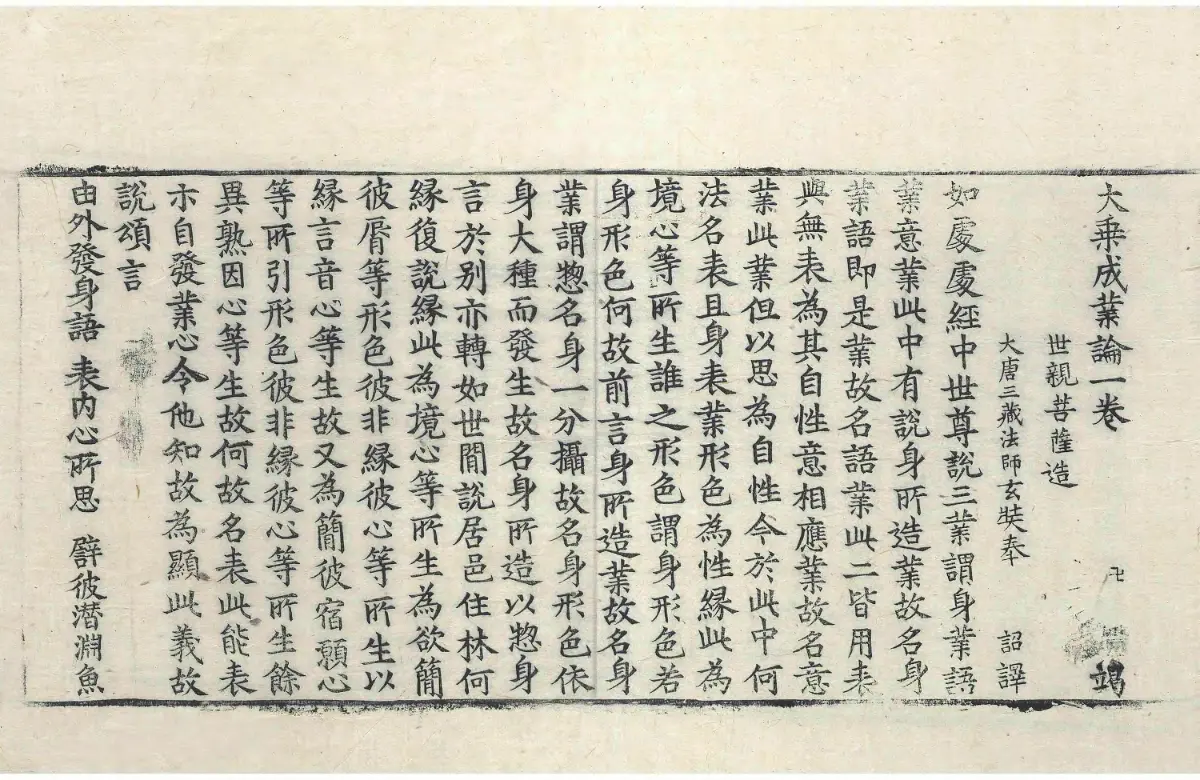 大乘成業論一卷 卍 竭
世親菩薩造
大唐三藏法師玄奘奉 詔譯
如處處經中世尊說三業謂身業語
業意業此中有說身所造業故名身
業語即是業故名語業此二皆用表
與無表為其自性意相應業故名意
業此業但以思為自性今於此中何
法名表且身表業形色為性緣此為
境心等所生誰之形色謂身形色若
身形色何故前言身所造業故名身
業謂惣名身一分攝故名身形色依
身大種而發生故名身所造以惣身
言於別亦轉如世間說居邑住林何
緣復說緣此為境心等所生為欲簡
彼脣等形色彼非緣彼心等所生以
緣言音心等生故又為簡彼宿願心
等所引形色彼非緣彼心等所生餘
異熟因心等生故何故名表此能表
示自發業心令他知故為顯此義故
說頌言
由外發身語 表內心所思 譬彼潛淵魚